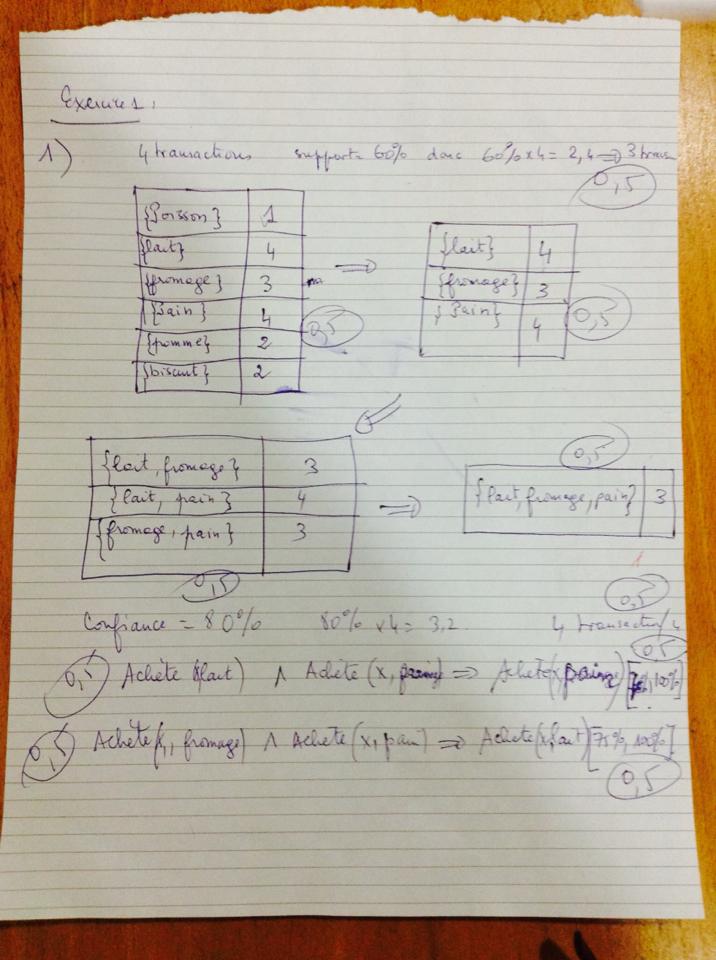 Exercice 1:
1) 4 transactions support= 60% donc 60% x 4 = 2,4 => 3 trans
0,5
{Poisson} 1
{lait} 4
{fromage} 3
{Pain} 4
{pomme} 2
{biscuit} 2
0,5
=>
{lait} 4
{fromage} 3
{Pain} 4
0,5
{lait, fromage} 3
{lait, pain} 4
{fromage, pain} 3
0,5
=>
0,5
{lait, fromage, pain} 3
0,5
Confiance = 80% 80% x 4 = 3,2 4 transaction
0,5
0,5 Achète (lait) ∧ Achète (x, => Achète(x, 100%]
0,5 Achète(x, fromage) ∧ Achete (x, pain) => Achete (x, lait) [75%, 100%]
0,5